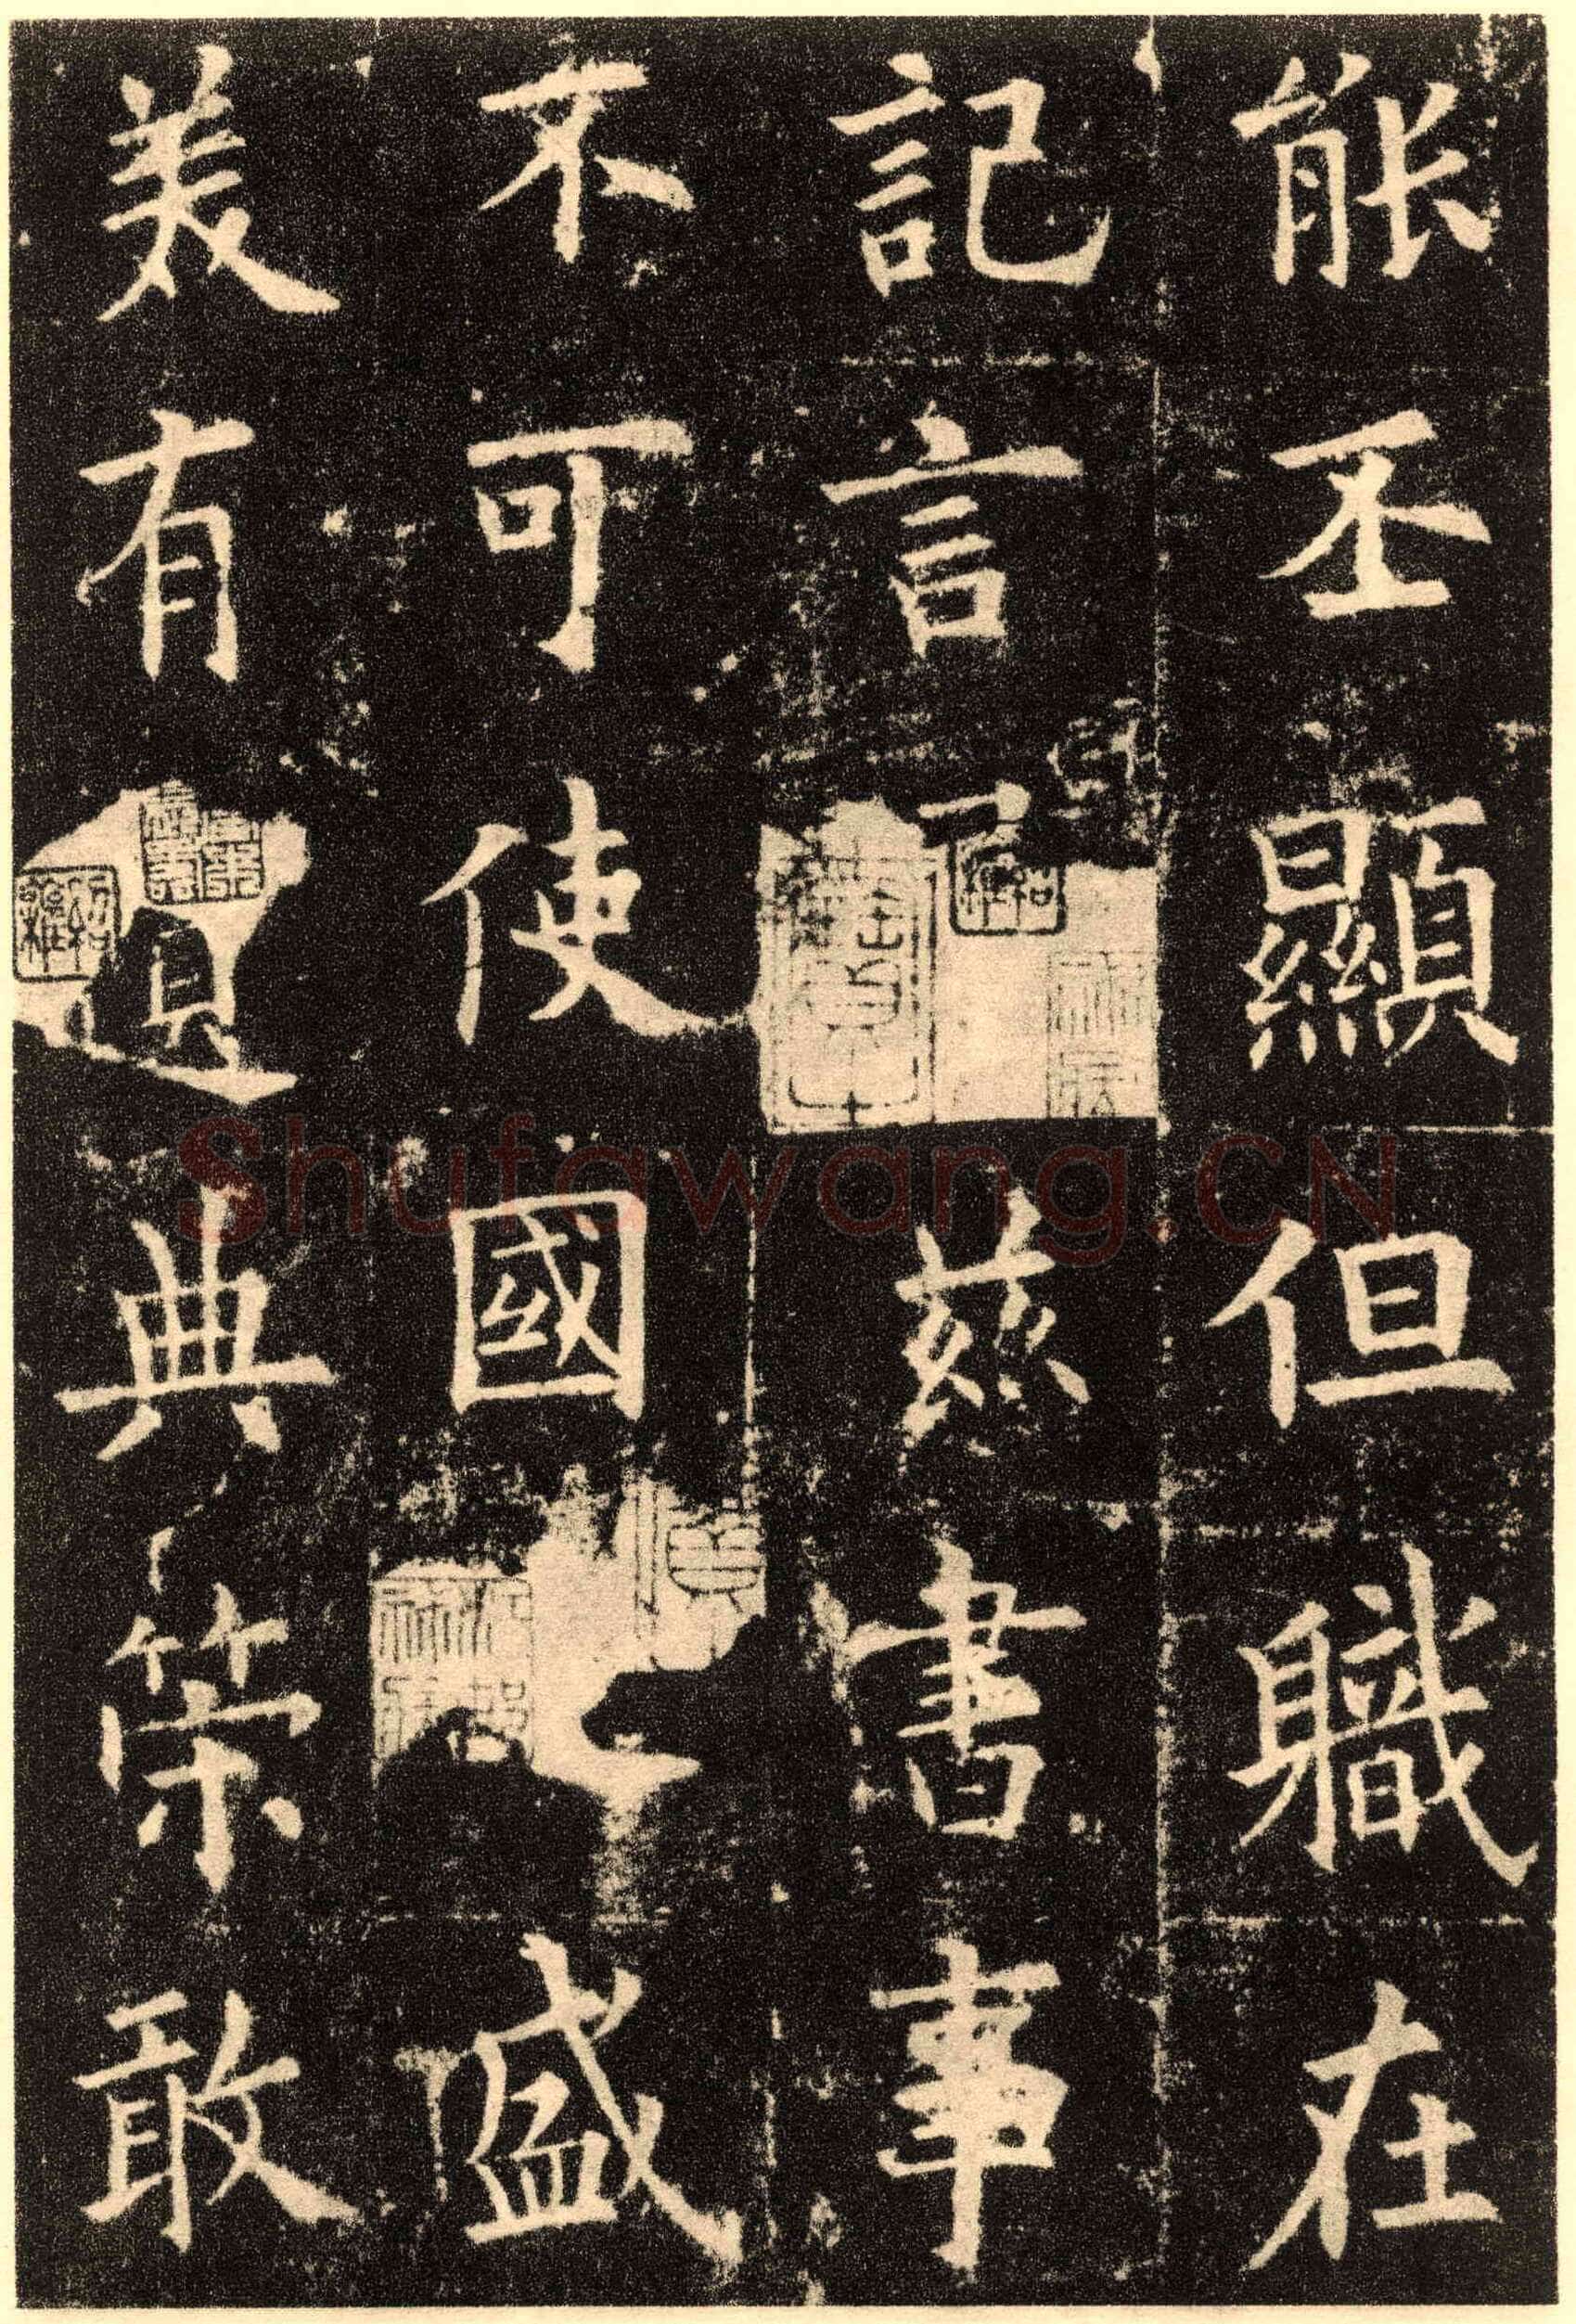 能丕顯但軄在
記言茲書事
不可使國盛
美有遺典策敢
Shufawang.CN